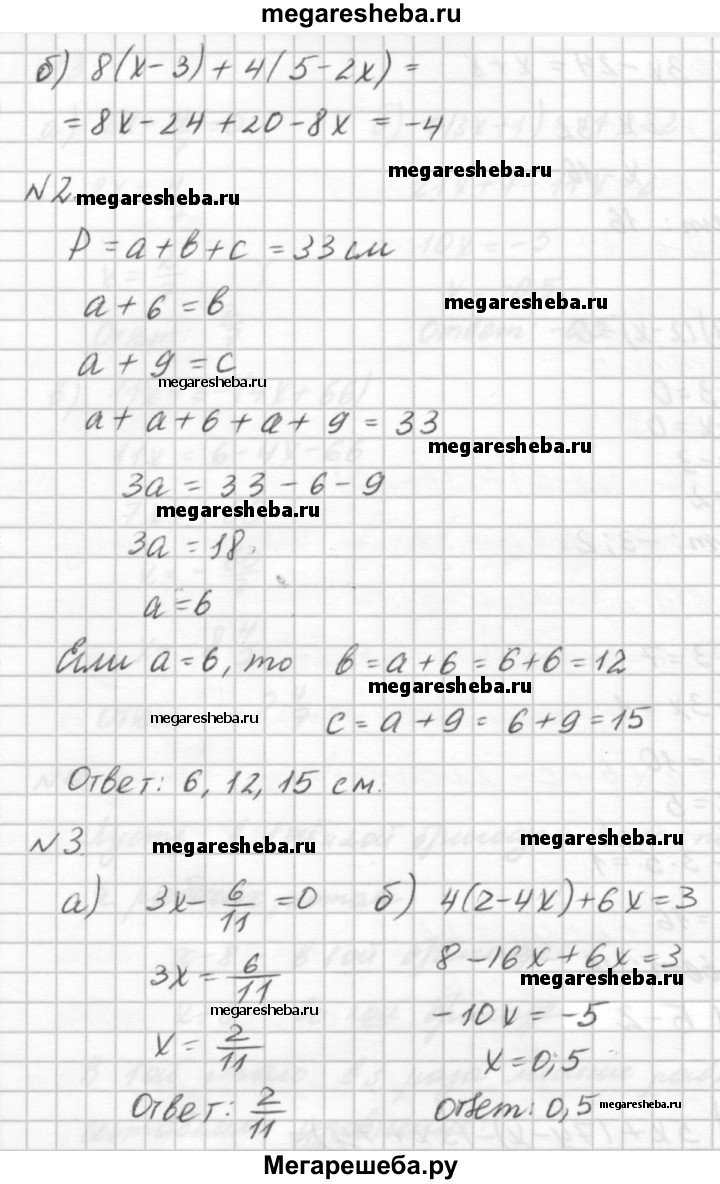 megaresheba.ru
б) 8(x-3)+4(5-2x)=
=8x-24+20-8x = -4
megaresheba.ru
№2.
megaresheba.ru
P=a+b+c=33 см
a+6=b
megaresheba.ru
a+9=c
megaresheba.ru
a+a+6+a+9=33
megaresheba.ru
3a=33-6-9
megaresheba.ru
3a=18
a=6
Если a=6, то b=a+6=6+6=12
megaresheba.ru
megaresheba.ru c=a+9=6+9=15
Ответ: 6, 12, 15 см.
№3.
megaresheba.ru
megaresheba.ru
а) 3x-6/11=0 б) 4(2-4x)+6x=3
3x=6/11 8-16x+6x=3
megaresheba.ru
megaresheba.ru
x=2/11 -10x=-5
x=0,5
Ответ: 2/11 Ответ: 0,5
megaresheba.ru
Мегарешеба.ру